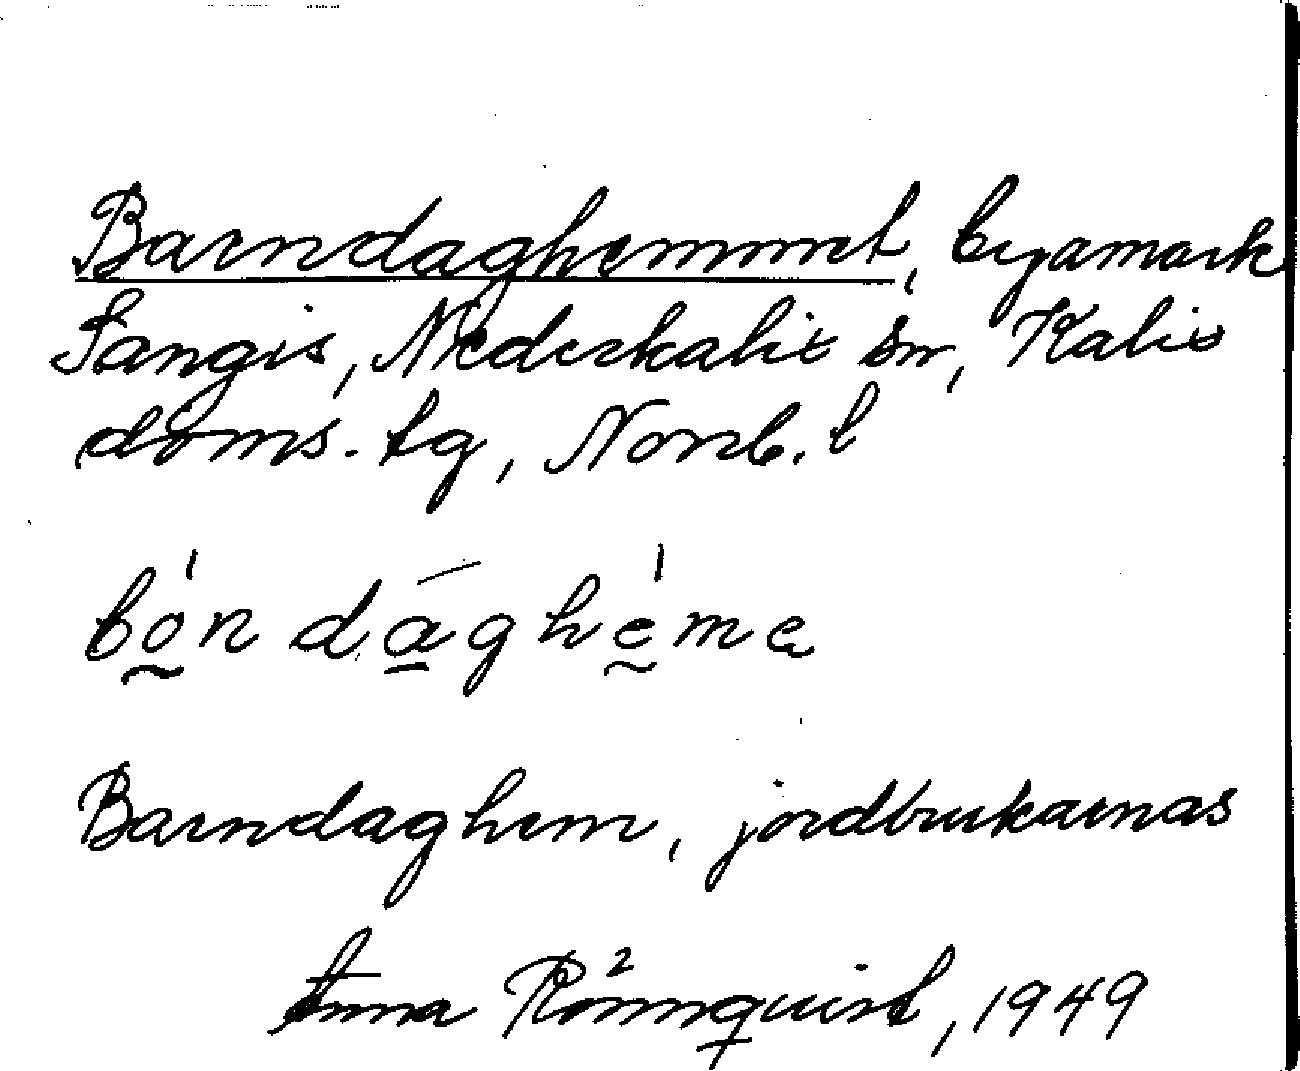 Barndaghemmet, byamark
Sangis, Nederkalix sn, Kalix
doms. tg, Norrb. l
bo̰̍n dā̱ghḛ̍me
Barndaghem, jordbrukarnas
Anna Rönnquist, 1949